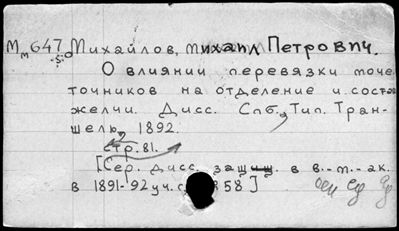 Мм 647 Михайлов, Михаил Петрович.
-5-
О влиянии перевязки моче
точников на отделение и состав
желчи. Дисс. Спб., Тип. Тран-
шелю, 1892.
стр. 81.
[Сер. дисс. защищ. в в.-м.-ак.
в 1891-92 уч. 58]